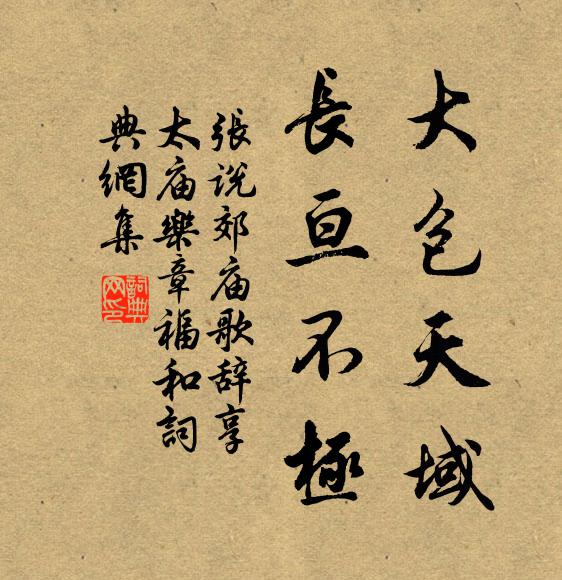 大包天域
長亘不極
張説郊庙歌辞享
太庙樂章福和詞
典網集
詞典網印